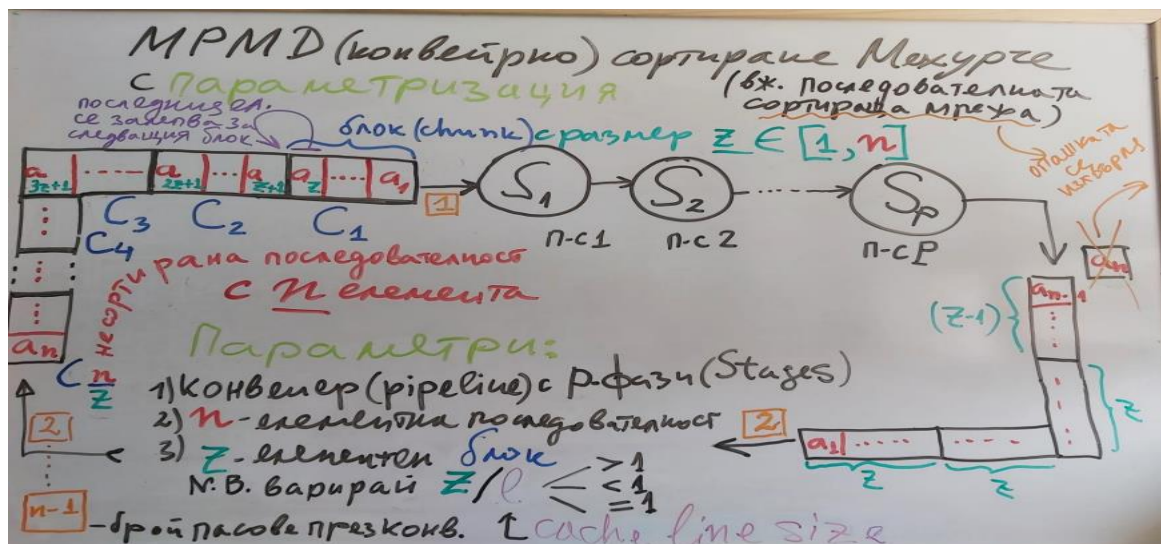 MPMD (конвейрно) сортиране Мехурче
с параметризация
(вж. последователната
сортираща мрежа)
последният ел.
се залепва за
следващия блок
блок (chunk) с размер z ∈ [1, n]
опашката
се
изхвърля
a3z+1 ...... a2z+1 .... az+1 az .... a1
1
S1
S2
Sp
C3 C2 C1
C4
п-с 1
п-с 2
п-с P
an
несортирана последователност
с n елемента
an-1
(z-1)
an
C n/z
Параметри:
1) Конвейер (pipeline) с p-фази (Stages)
2) n-елементна последователност
3) z-елементен блок
N.B. варирай z/l
>1
<1
=1
2
a1 ..... ....
z
z
z
2
n-1
-брой пасове през конв.
↑ cache line size